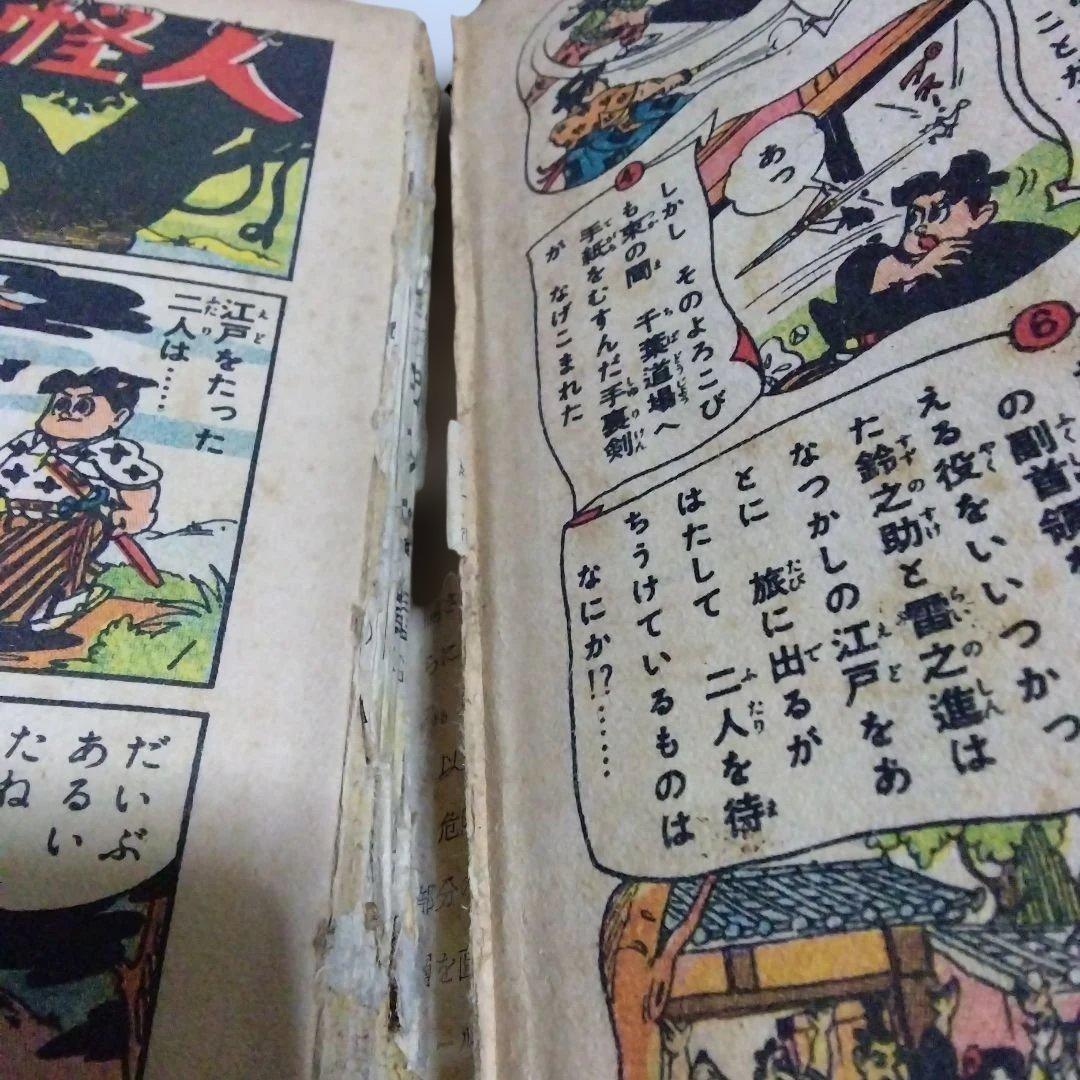 ことが
あっ
4
しかし そのよろこび
も束の間 千葉道場へ
手紙をむすんだ手裏剣
が なげこまれた
6
の副首領が
える役をいいつかっ
た鈴之助と雷之進は
なつかしの江戸をあ
とに 旅に出るが
はたして 二人を待
ちうけているものは
なにか!?……
怪人
江戸をたった
二人は……
だいぶ
あるい
たね